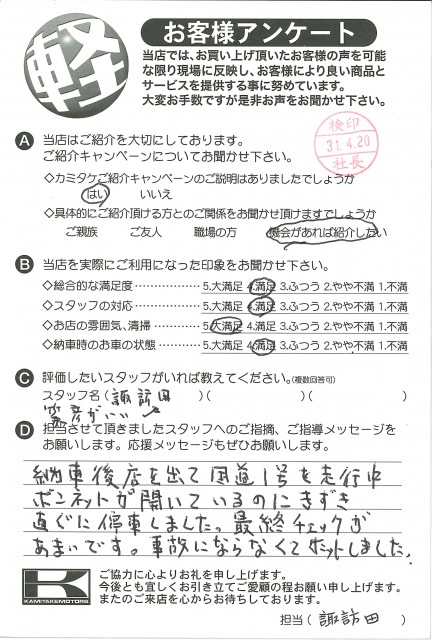 軽
お客様アンケート
当店では、お買い上げ頂いたお客様の声を可能
な限り現場に反映し、お客様により良い商品と
サービスを提供する事に努めています。
大変お手数ですが是非お声をお聞かせ下さい。
検印
31.4.20
社長
A 当店はご紹介を大切にしております。
ご紹介キャンペーンについてお聞かせ下さい。
◇カミタケご紹介キャンペーンのご説明はありましたでしょうか
はい いいえ
◇具体的にご紹介頂ける方とのご関係をお聞かせ頂けますでしょうか
ご親族 ご友人 職場の方 機会があれば紹介したい
B 当店を実際にご利用になった印象をお聞かせ下さい。
◇総合的な満足度 5.大満足 4.満足 3.ふつう 2.やや不満 1.不満
◇スタッフの対応 5.大満足 4.満足 3.ふつう 2.やや不満 1.不満
◇お店の雰囲気、清掃 5.大満足 4.満足 3.ふつう 2.やや不満 1.不満
◇納車時のお車の状態 5.大満足 4.満足 3.ふつう 2.やや不満 1.不満
C 評価したいスタッフがいれば教えてください。(複数回答可)
スタッフ名(諏訪田 )( )( )
がいい
D 担当させて頂きましたスタッフへのご指摘、ご指導メッセージを
お願いします。応援メッセージもぜひお願いします。
納車後店を出て国道1号を走行中
ボンネットが開いているのにきずき
直ぐに停車しました。最終チェックが
あまいです。事故にならなくてホットしました。
K
KAMITAKEMOTORS
ご協力に心よりお礼を申し上げます。
今後とも宜しくお引き立てご愛顧の程お願い申し上げます。
またのご来店を心からお待ちしております。
担当( 諏訪田 )